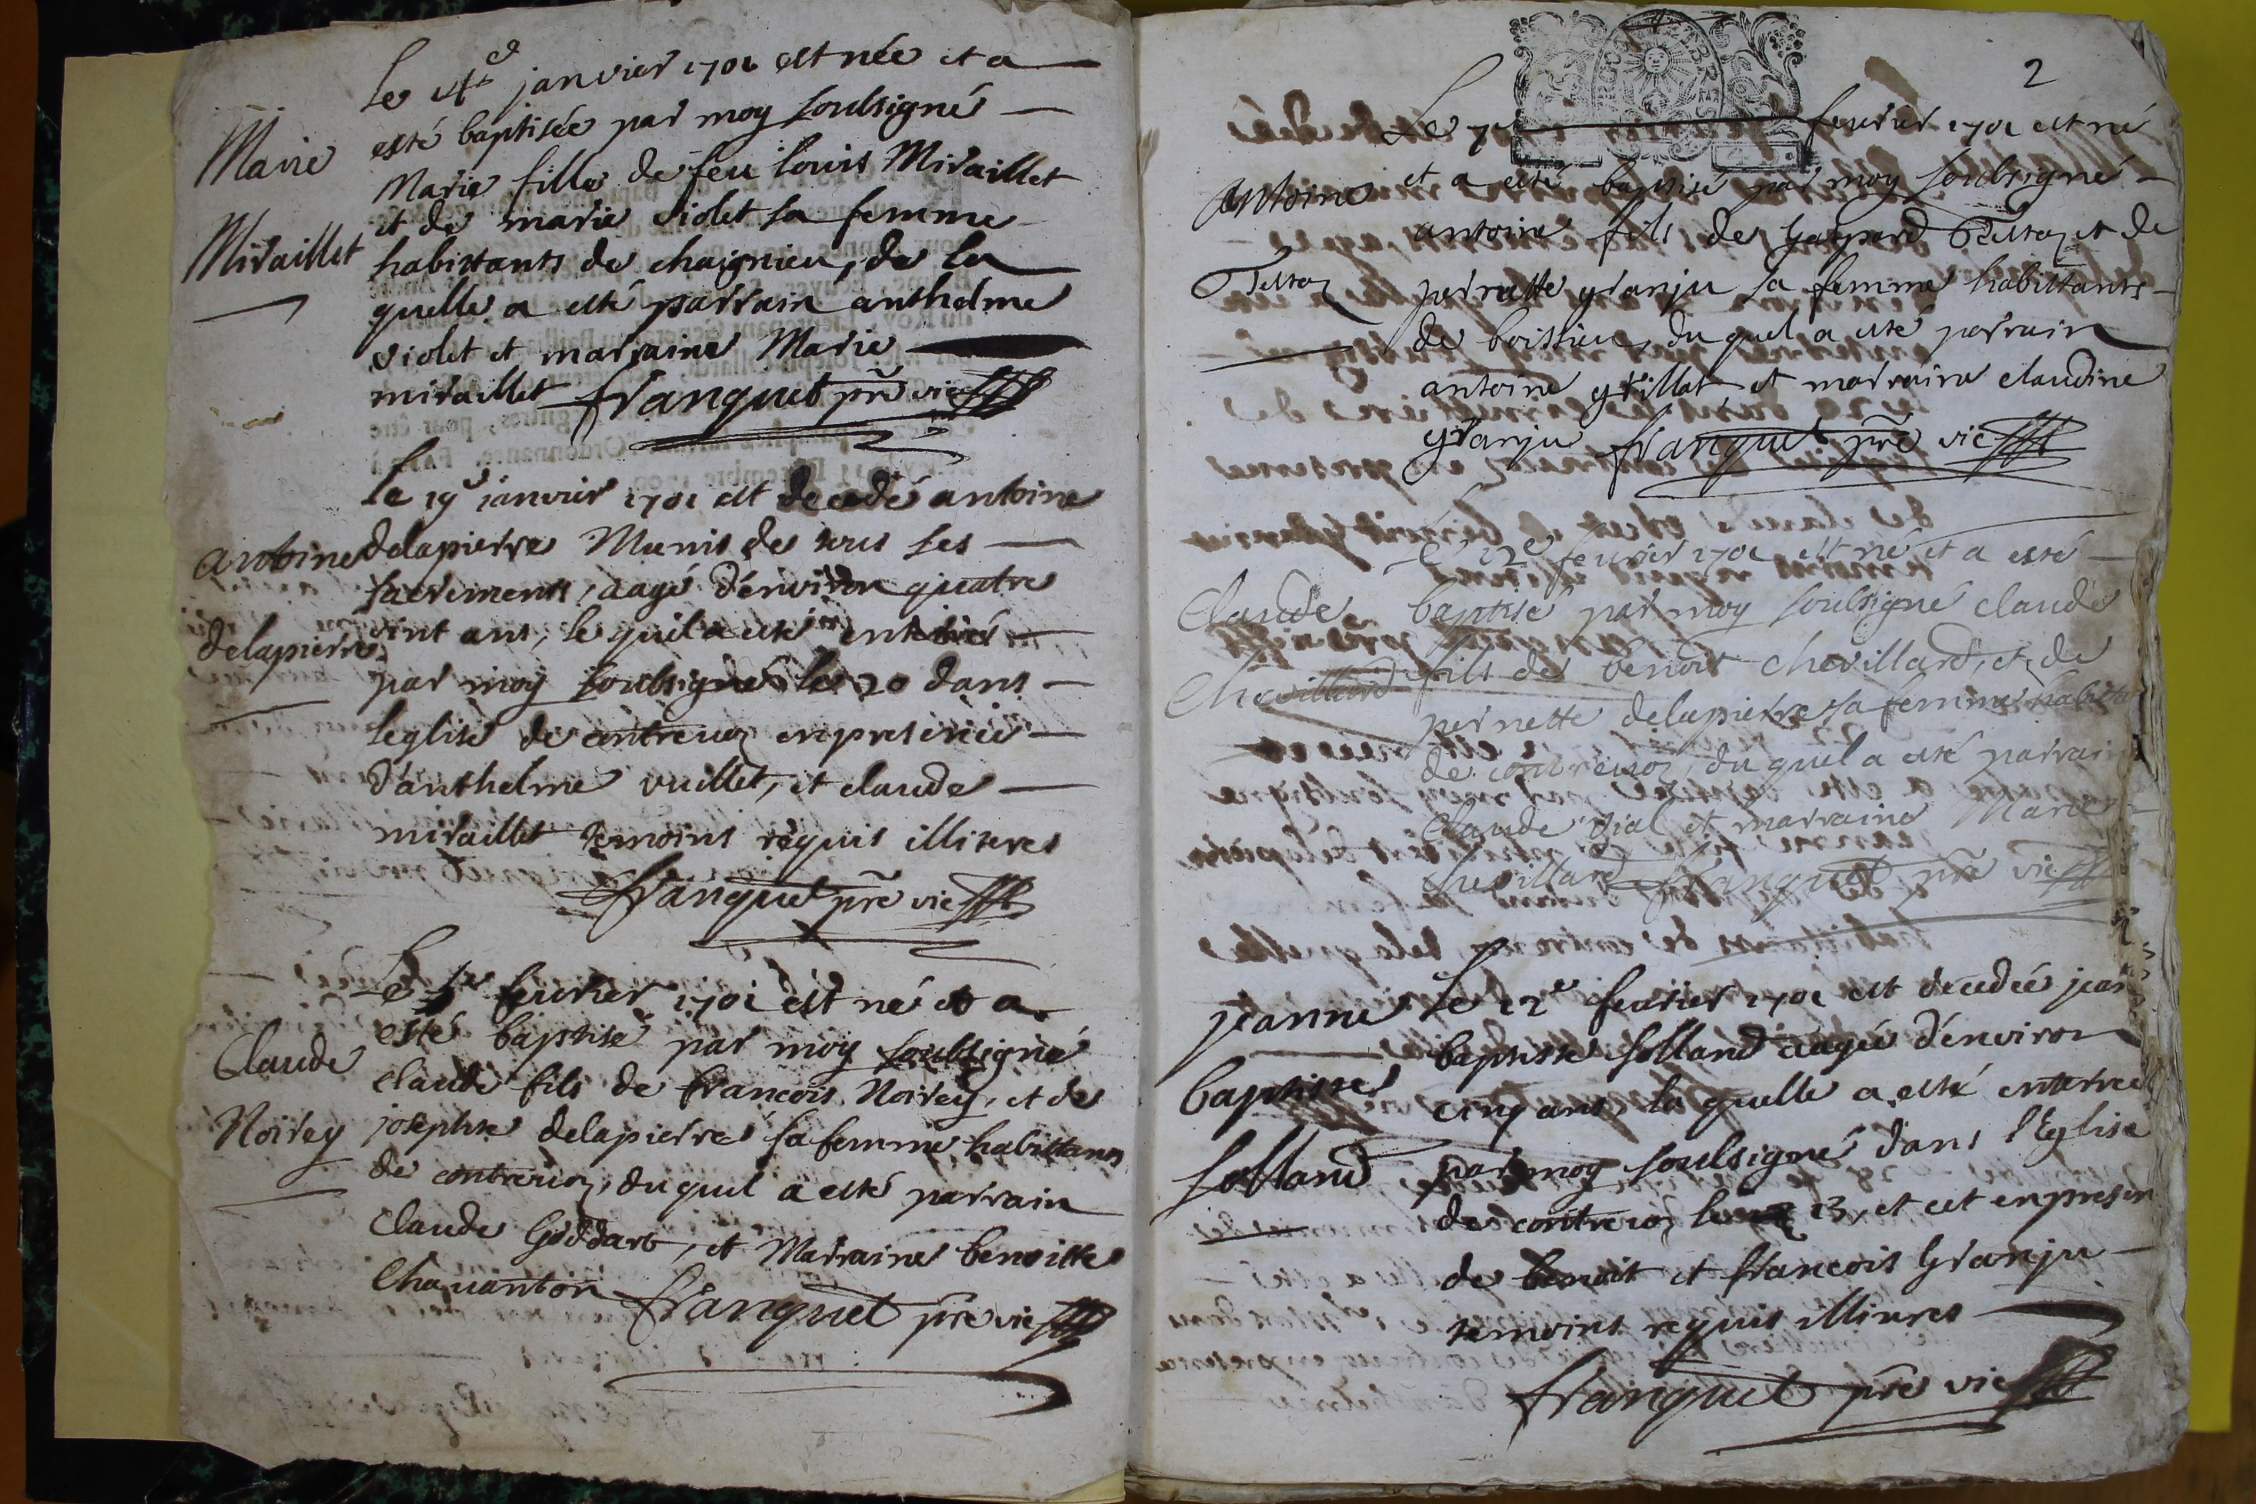 Le 14e janvier 1701 est née et a
esté baptisée par moy soubsigné
Marie Marie fille de feu louis Miraillet
et de marie violet sa femme
Miraillet habittants de chaignieu, de la
quelle a esté parrain anthelme
violet et marraine Marie
miraillet franquet pre vic
Le 19e janvier 1701 est decedé antoine
antoine delapierre Munis de tous ses
sacrements, aagé d'environ quatre
delapierre vint ans, le quel a esté enterré
par moy soubsigné le 20 dans
leglise de contrevoz en presence
d'anthelme vuillet, et claude
miraillet temoins requis illiteres
franquet pre vic
Le 1er feuvrier 1701 est né et a
esté baptisé par moy soubsigné
Claude claude fils de francois Noirey, et de
Noirey josephte delapierre sa femme habittants
de contrevoz, du quel a esté parrain
claude Goddart, et Marraine benoitte
Chavanton franquet pre vic
2
Le 7e feuvrier 1701 est né
antoine et a esté baptisé par moy soubsigné
antoine fils de gaspard Testaz et de
Testaz pernette granju sa femme habittants
de boissieu, du quel a esté parrain
antoine grillat et marraine claudine
granju franquet pre vic
Le 12e feuvrier 1701 est né et a esté
Claude baptisé par moy soubsigné claude
Chevillard fils de benoit chevillard, et de
pernette delapierre sa femme habitta
de contrevoz, du quel a esté parrain
claude vial et marraine Marie
chevillard franquet pre vic
jeanne Le 12e feuvrier 1701 est decedée jean
baptiste solland aagée d'environ
baptiste cinq ans, la quelle a esté enterrée
solland par moy soulsigné dans l'Eglise
de contrevoz le 13, et cet en presen
de benoit et francois Granju
temoins requis illiteres
franquet pre vic